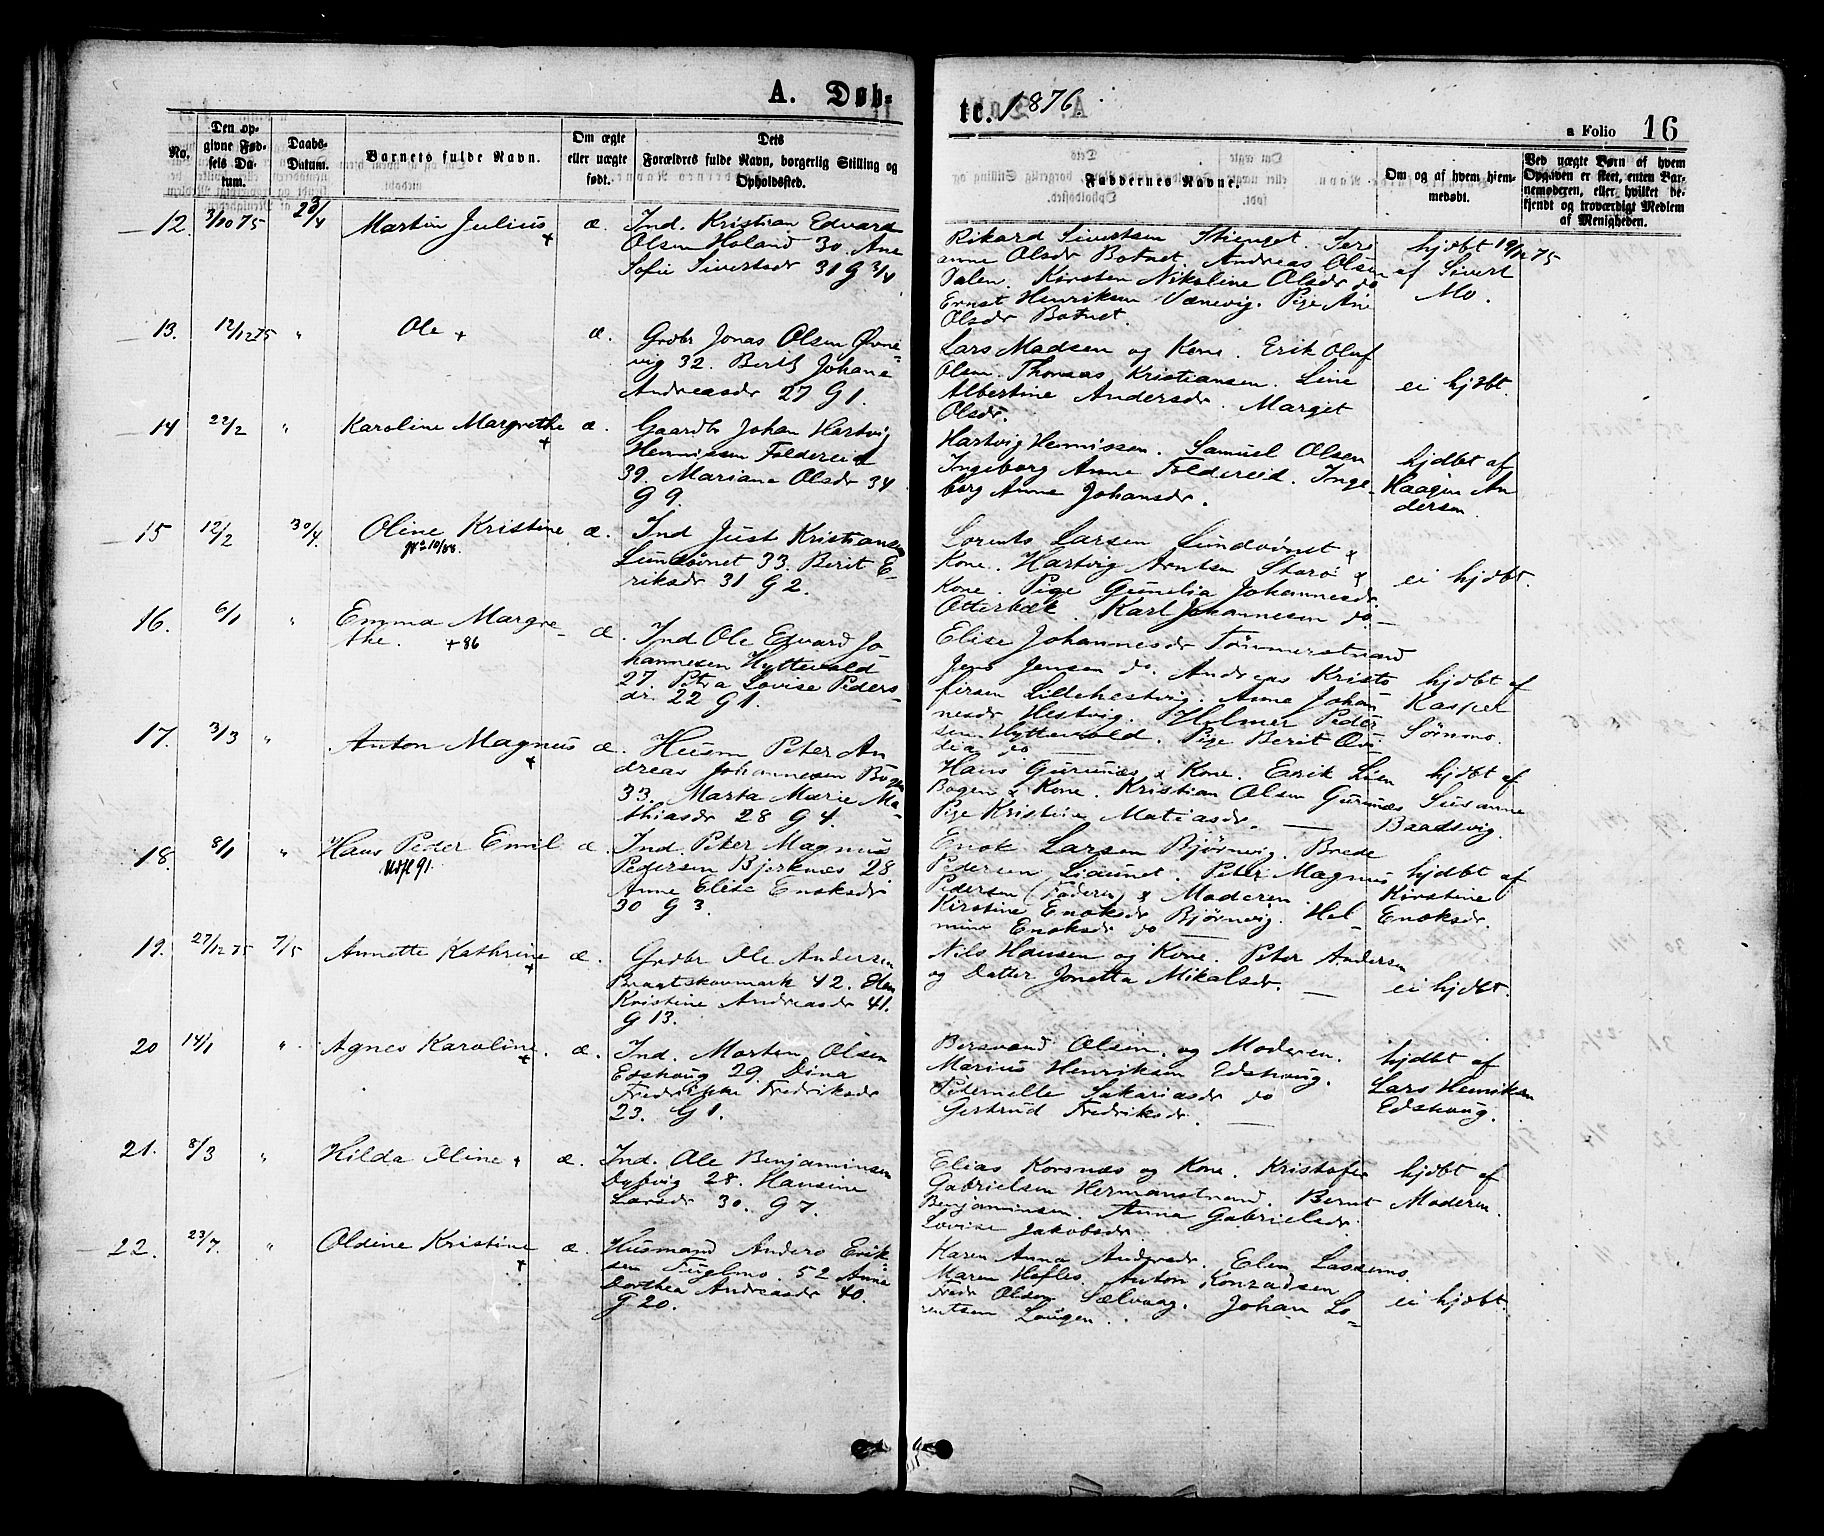 A. Døb-
te. 1876.
a Folio 16
No.
Den op-
givne Fød-
sels Da-
tum.
Daabs-
Datum.
Barnets fulde Navn.
Om ægte
eller uægte
født.
Dets
Forældres fulde Navn, borgerlig Stilling og
Opholdssted.
Faddernes Navne.
Om og af hvem hjem-
medøbt.
Ved uægte Børn af hvem
Opgaven er skeet, enten Bar-
nemoderen, eller hvilket be-
kjendt og troværdigt Medlem
af Menigheden.
12 3/10 75 23/4 Martin Julius + æ. Ind. Kristian Edvard
Olsen Holand 30. Ane
Sofie Sivertsdr 31 G 3/4
Rikard Sivertsen
anne Olsdr Botnet. Andreas Olsen
Dalen. Kirsten Nikoline Olsdr do
Ernst Henriksen Vænevig. Pige Ane
Olsdr Botnet.
hjdbt 19/12 75
af Sivert
Mo.
13. 12/12 75 " Ole + æ. Grdbr Jonas Olsen Øvne-
vig 32. Berit Johane
Andreasdr 27 G 1.
Lars Madsen og Kone. Erik Oluf
Olsen. Thomas Kristiansen. Line
Albertine Andersdr. Marget
Olsdr.
ei hjdbt.
14 22/2 " Karoline Margrethe + æ. Gaardbr Johan Hartvig
Hennissen Foldereid
39. Mariane Olsdr 34
G 9.
Hartvig Hennissen. Samuel Olsen
Ingeborg Anne Foldereid. Inge-
borg Anne Johansdr.
hjdbt af
Haagen An
dersen
15 12/2 30/4. Oline Kristine æ. Ind Just Kristiansen
Lundsønet 33. Berit E-
riksdr 31 G 2.
Lorents Larsen Lundsønet &
Kone. Hartvig Arntsen Storø &
Kone. Pige Gunelia Johannesdr.
Otterbæk. Karl Johannesen do.—
ei hjdbt.
16. 6/1 " Emma Margre-
the. + 86
æ. Ind Ole Edvard Jo
hannesen Hyttevold
27. Petra Lovise Peders-
dr. 22 G 1.
Elise Johannesdr Tømmerstrand
Jens Jensen do. Andreas Kristo
fersen Lillehestvig. Anne Johan
nesdr Hestvig. Holmer Peder
sen Hyttevold. Pige Berit
do —
hjdbt af
Kasper
Sørmo.
17. 3/3 " Anton Magnus + æ. Husm Peter An
dreas Johannesen Bogen
33. Marta Marie Ma-
thiasdr 28 G 4.
Hans Gurunæs & Kone. Eerik Lien
Bogen & Kone. Kristian Olsen Gurunæs
Pige Kristine Matiasdr. —
hjdbt af
Susanne
Baadsvig.
18. 8/1 " Hans Peder Emil
æ. Ind. Peter Magnus
Pedersen Bjerknes 28
Anne Elise Enoksdr
30 G 3.
Enok Larsen Bjørnvig. Brede
Pedersen Liaunet. Peter Magnus
Pedersen (Faderen) & Moderen.
Kirstine Enoksdr Bjørnvig. Hel-
mine Enoksdr do —
hjdbt af
Kirstine
Enoksdr.
19. 27/12 75 7/5 Annette Kathrine + æ. Grdbr Ole Andersen
Bragtskoumark 42.
Kristine Andreasdr 41.
G 13.
Nils Hansen og Kone. Peter Andersen
og Datter Jonetta Mikalsdr. —
ei hjdbt.
20 14/1 " Agnes Karoline. + æ. Ind. Morten Olsen
Edshoug 29. Dina
Fredrikke Fredriksdr
23. G 1.
Bersvand Olsen og Moderen.
Marius Henriksen Edshoug.
Pedernelle Sakariasdr do
Gertrud Fredriksdr. —
hjdbt af
Lars Henriksen
Edshoug.
21. 8/3 " Hilda Oline + æ. Ind. Ole Benjaminsen
Dybvig 28. Hansine
Larsdr 30. G 7.
Elias Korsnæs og Kone. Kristofer
Gabrielsen Hermanstrand. Bernt
Benjaminsen. Anna Gabrielsdr.
Lovise Jakobsdr.
hjdbt af
Moderen.
22. 23/7. " Oldine Kristine + æ. Husmand Anders Erik-
sen Fuglmo. 52 Anne
Dorthea Andreasdr 40.
G 20.
Karen Anna Andersdr. Elen Lassemo.
Maren Høfles. Anton Konradsen
Fredr Olsen Sælvaag. Johan Lo-
rentsen Lougen.
ei hjdbt.